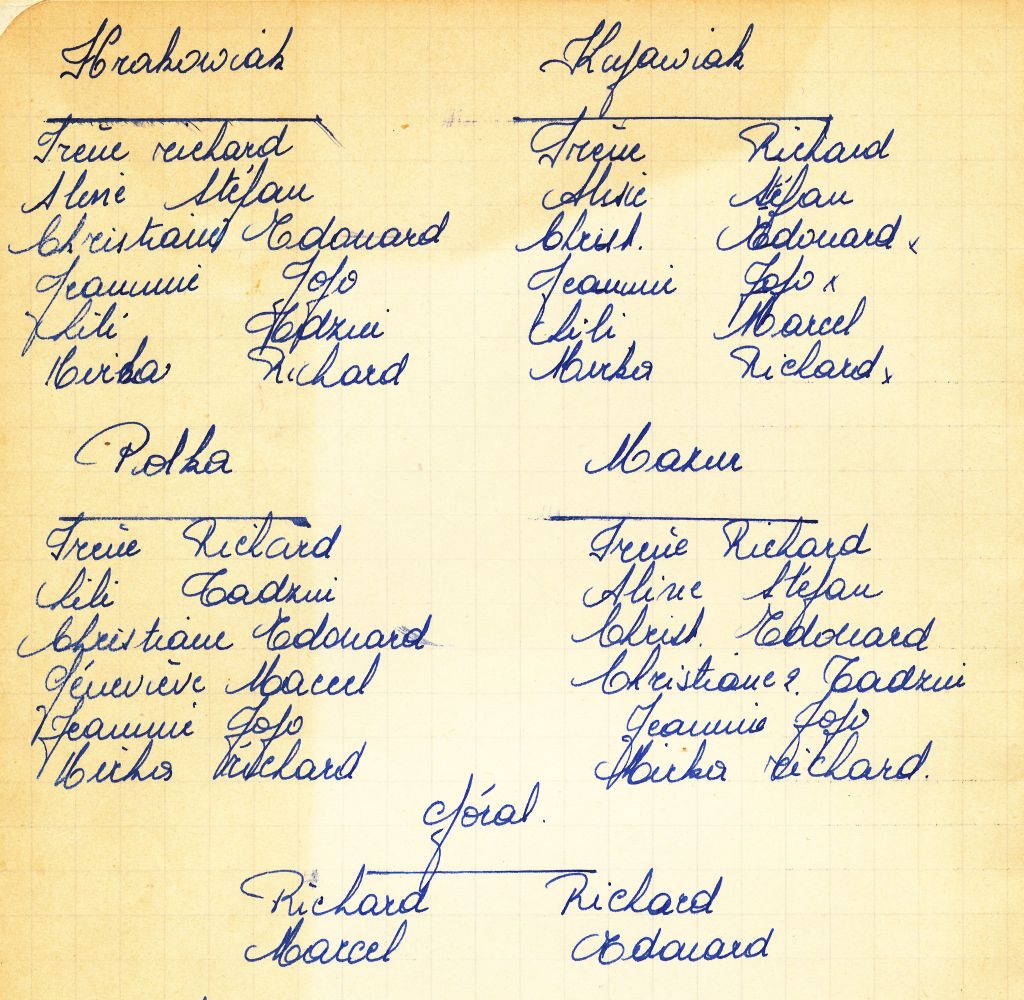 Krakowiak
Irène richard
Aline Stéfan
Christiane Edouard
Jeannine Jojo
Lili Tadziu
Mirka Richard
Kujawiak
Irène Richard
Aline Stéfan
Christ. Edouard x
Jeannine Jojo x
Lili Marcel
Mirka Richard x
Polka
Irène Richard
Lili Tadziu
Christiane Edouard
Géneviève Marcel
Jeannine Jojo
Mirka Richard
Mazur
Irène Richard
Aline Stéfan
Christ. Edouard
Christiane 2. Tadziu
Jeannine Jojo
Mirka Richard.
Góral.
Richard Richard
Marcel Edouard